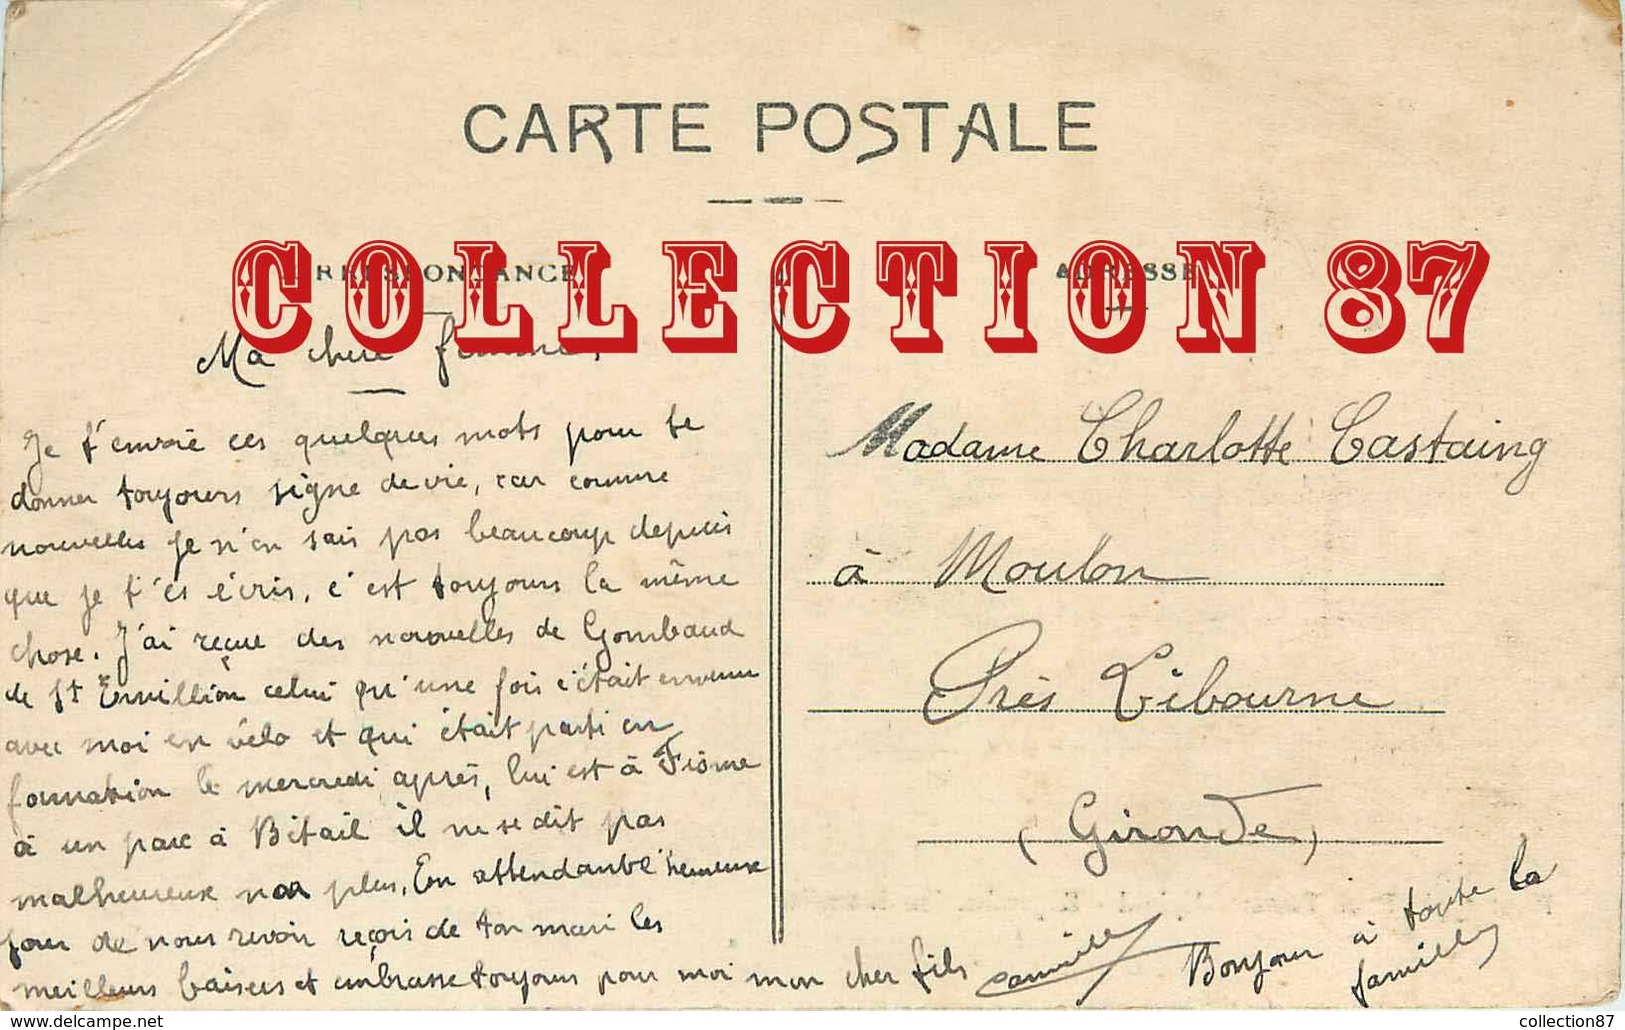 CARTE POSTALE
COLLECTION 87
CORRESPONDANCE
ADRESSE
Ma chere femme,
Je t'envoie ces quelques mots pour te
donner toujours signe de vie, car comme
nouvelles je n'en sais pas beaucoup depuis
que je t'es écris, c'est toujours la même
chose. J'ai reçue des nouvelles de Gombaud
de St Emillion celui qu'une fois c'était envenu
avec moi en vélo et qui était parti en
formation le mercredi après, lui est à Fiôme
à un parc à Bétail il ne se dit pas
malheureux non plus. En attendant l'heureux
jour de nous revoir reçois de ton mari les
meilleurs baisers et embrasse toujours pour moi mon cher fils
Camille
Bonjour à toute la
famille
Madame Charlotte Castaing
à Moulon
Près Libourne
(Gironde)
http://www.delcampe.net
collection87